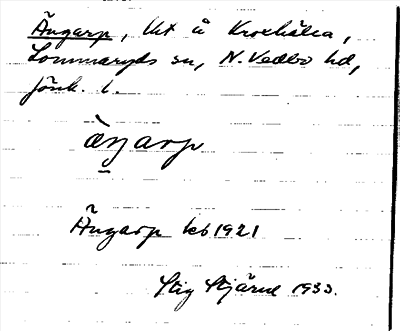 Ängarp, lht å Kroxhálla,
Lommaryds sn, N. Vedbo hd,
Jönk. l.
àŋarp
Ängarp kb 1921
Stig Stjärne 1933.